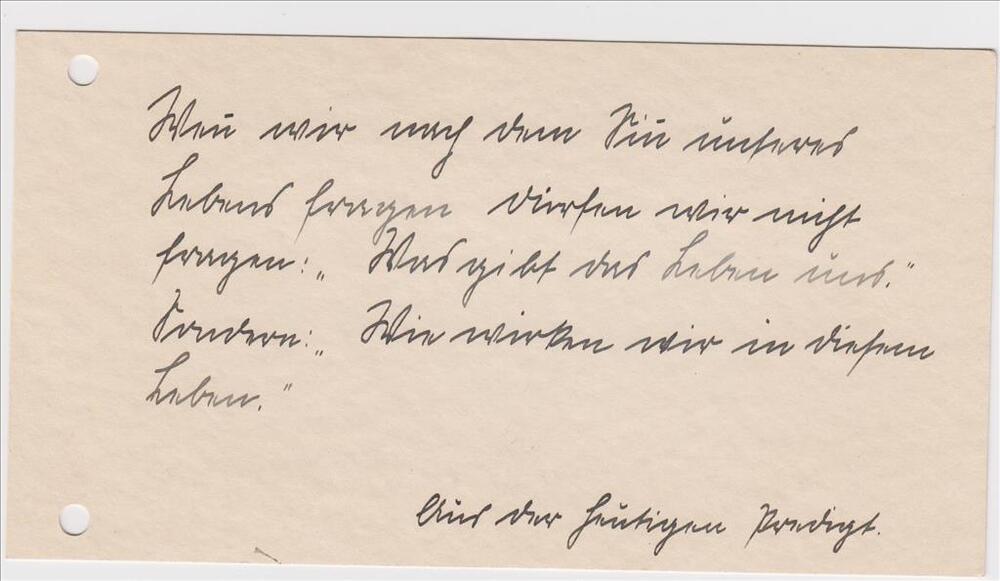 Wen̄ wir nach dem Sin̄ unseres
Lebens fragen dürfen wir nicht
fragen: „Was gibt das Leben uns.“
Sondern: „Wie wirken wir in diesem
Leben.“
Aus der heutigen Predigt.